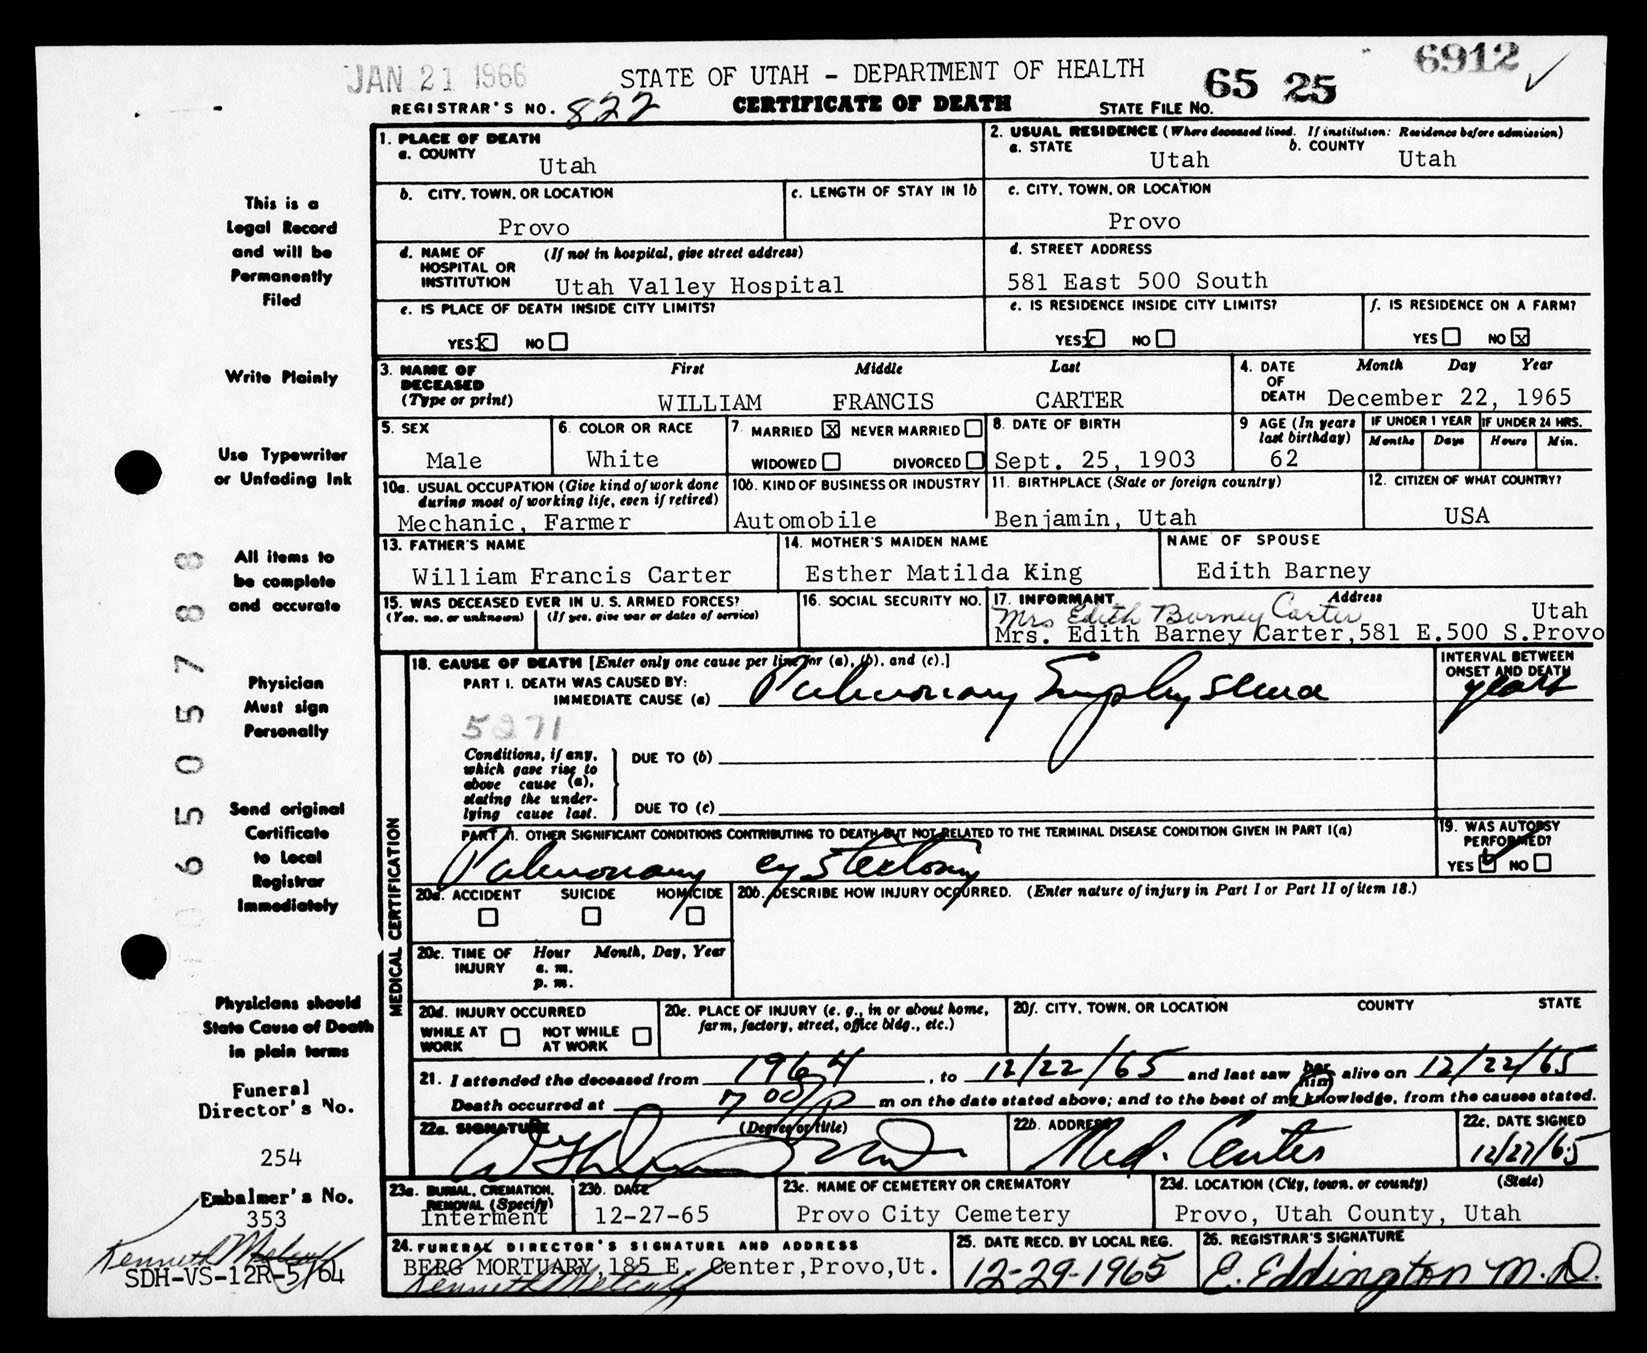 JAN 21 1966
6912
STATE OF UTAH - DEPARTMENT OF HEALTH
65 25
REGISTRAR'S NO. 822
CERTIFICATE OF DEATH
STATE FILE NO.
1. PLACE OF DEATH
a. COUNTY
Utah
2. USUAL RESIDENCE (Where deceased lived. If institution: Residence before admission)
a. STATE
Utah
b. COUNTY
Utah
b. CITY, TOWN, OR LOCATION
Provo
c. LENGTH OF STAY IN 1b
c. CITY, TOWN, OR LOCATION
Provo
d. NAME OF HOSPITAL OR INSTITUTION
(If not in hospital, give street address)
Utah Valley Hospital
d. STREET ADDRESS
581 East 500 South
e. IS PLACE OF DEATH INSIDE CITY LIMITS?
YES X NO
e. IS RESIDENCE INSIDE CITY LIMITS?
YES X NO
f. IS RESIDENCE ON A FARM?
YES NO X
3. NAME OF DECEASED (Type or print)
First Middle Last
WILLIAM FRANCIS CARTER
4. DATE OF DEATH
Month Day Year
December 22, 1965
5. SEX
Male
6. COLOR OR RACE
White
7. MARRIED X NEVER MARRIED
WIDOWED DIVORCED
8. DATE OF BIRTH
Sept. 25, 1903
9 AGE (In years last birthday)
62
IF UNDER 1 YEAR
Months Days
IF UNDER 24 HRS.
Hours Min.
10a. USUAL OCCUPATION (Give kind of work done during most of working life, even if retired)
Mechanic, Farmer
10b. KIND OF BUSINESS OR INDUSTRY
Automobile
11. BIRTHPLACE (State or foreign country)
Benjamin, Utah
12. CITIZEN OF WHAT COUNTRY?
USA
13. FATHER'S NAME
William Francis Carter
14. MOTHER'S MAIDEN NAME
Esther Matilda King
NAME OF SPOUSE
Edith Barney
15. WAS DECEASED EVER IN U. S. ARMED FORCES?
(Yes, no, or unknown) (If yes, give war or dates of service)
16. SOCIAL SECURITY NO.
17. INFORMANT Address
Mrs Edith Barney Carter
Utah
Mrs. Edith Barney Carter,581 E.500 S.Provo
MEDICAL CERTIFICATION
18. CAUSE OF DEATH [Enter only one cause per line for (a), (b), and (c).]
PART I. DEATH WAS CAUSED BY:
IMMEDIATE CAUSE (a) Pulmonary Emphysema
INTERVAL BETWEEN ONSET AND DEATH
years
5271
Conditions, if any, which gave rise to above cause (a), stating the under-lying cause last.
DUE TO (b)
DUE TO (c)
PART II. OTHER SIGNIFICANT CONDITIONS CONTRIBUTING TO DEATH BUT NOT RELATED TO THE TERMINAL DISEASE CONDITION GIVEN IN PART I(a)
Pulmonary cystectomy
19. WAS AUTOPSY PERFORMED?
YES ✓ NO
20a. ACCIDENT SUICIDE HOMICIDE
20b. DESCRIBE HOW INJURY OCCURRED. (Enter nature of injury in Part I or Part II of item 18.)
20c. TIME OF INJURY
Hour Month, Day, Year
a. m.
p. m.
20d. INJURY OCCURRED
WHILE AT WORK NOT WHILE AT WORK
20e. PLACE OF INJURY (e. g., in or about home, farm, factory, street, office bldg., etc.)
20f. CITY, TOWN, OR LOCATION COUNTY STATE
21. I attended the deceased from 1964, to 12/22/65 and last saw her him alive on 12/22/65
Death occurred at 7 00 P m on the date stated above; and to the best of my knowledge, from the causes stated.
22a. SIGNATURE (Degree or title)
22b. ADDRESS
Med. Center
22c. DATE SIGNED
12/27/65
23a. BURIAL, CREMATION, REMOVAL (Specify)
Interment
23b. DATE
12-27-65
23c. NAME OF CEMETERY OR CREMATORY
Provo City Cemetery
23d. LOCATION (City, town, or county) (State)
Provo, Utah County, Utah
24. FUNERAL DIRECTOR'S SIGNATURE AND ADDRESS
BERG MORTUARY,185 E. Center,Provo,Ut.
Kenneth Metcalf
25. DATE RECD. BY LOCAL REG.
12-29-1965
26. REGISTRAR'S SIGNATURE
E. Eddington M.D.
This is a
Legal Record
and will be
Permanently
Filed
Write Plainly
Use Typewriter
or Unfading Ink
All items to
be complete
and accurate
Physician
Must sign
Personally
Send original
Certificate
to Local
Registrar
Immediately
Physicians should
State Cause of Death
in plain terms
Funeral
Director's No.
254
Embalmer's No.
353
Kenneth Metcalf
SDH-VS-12R-5/64
065050578 8